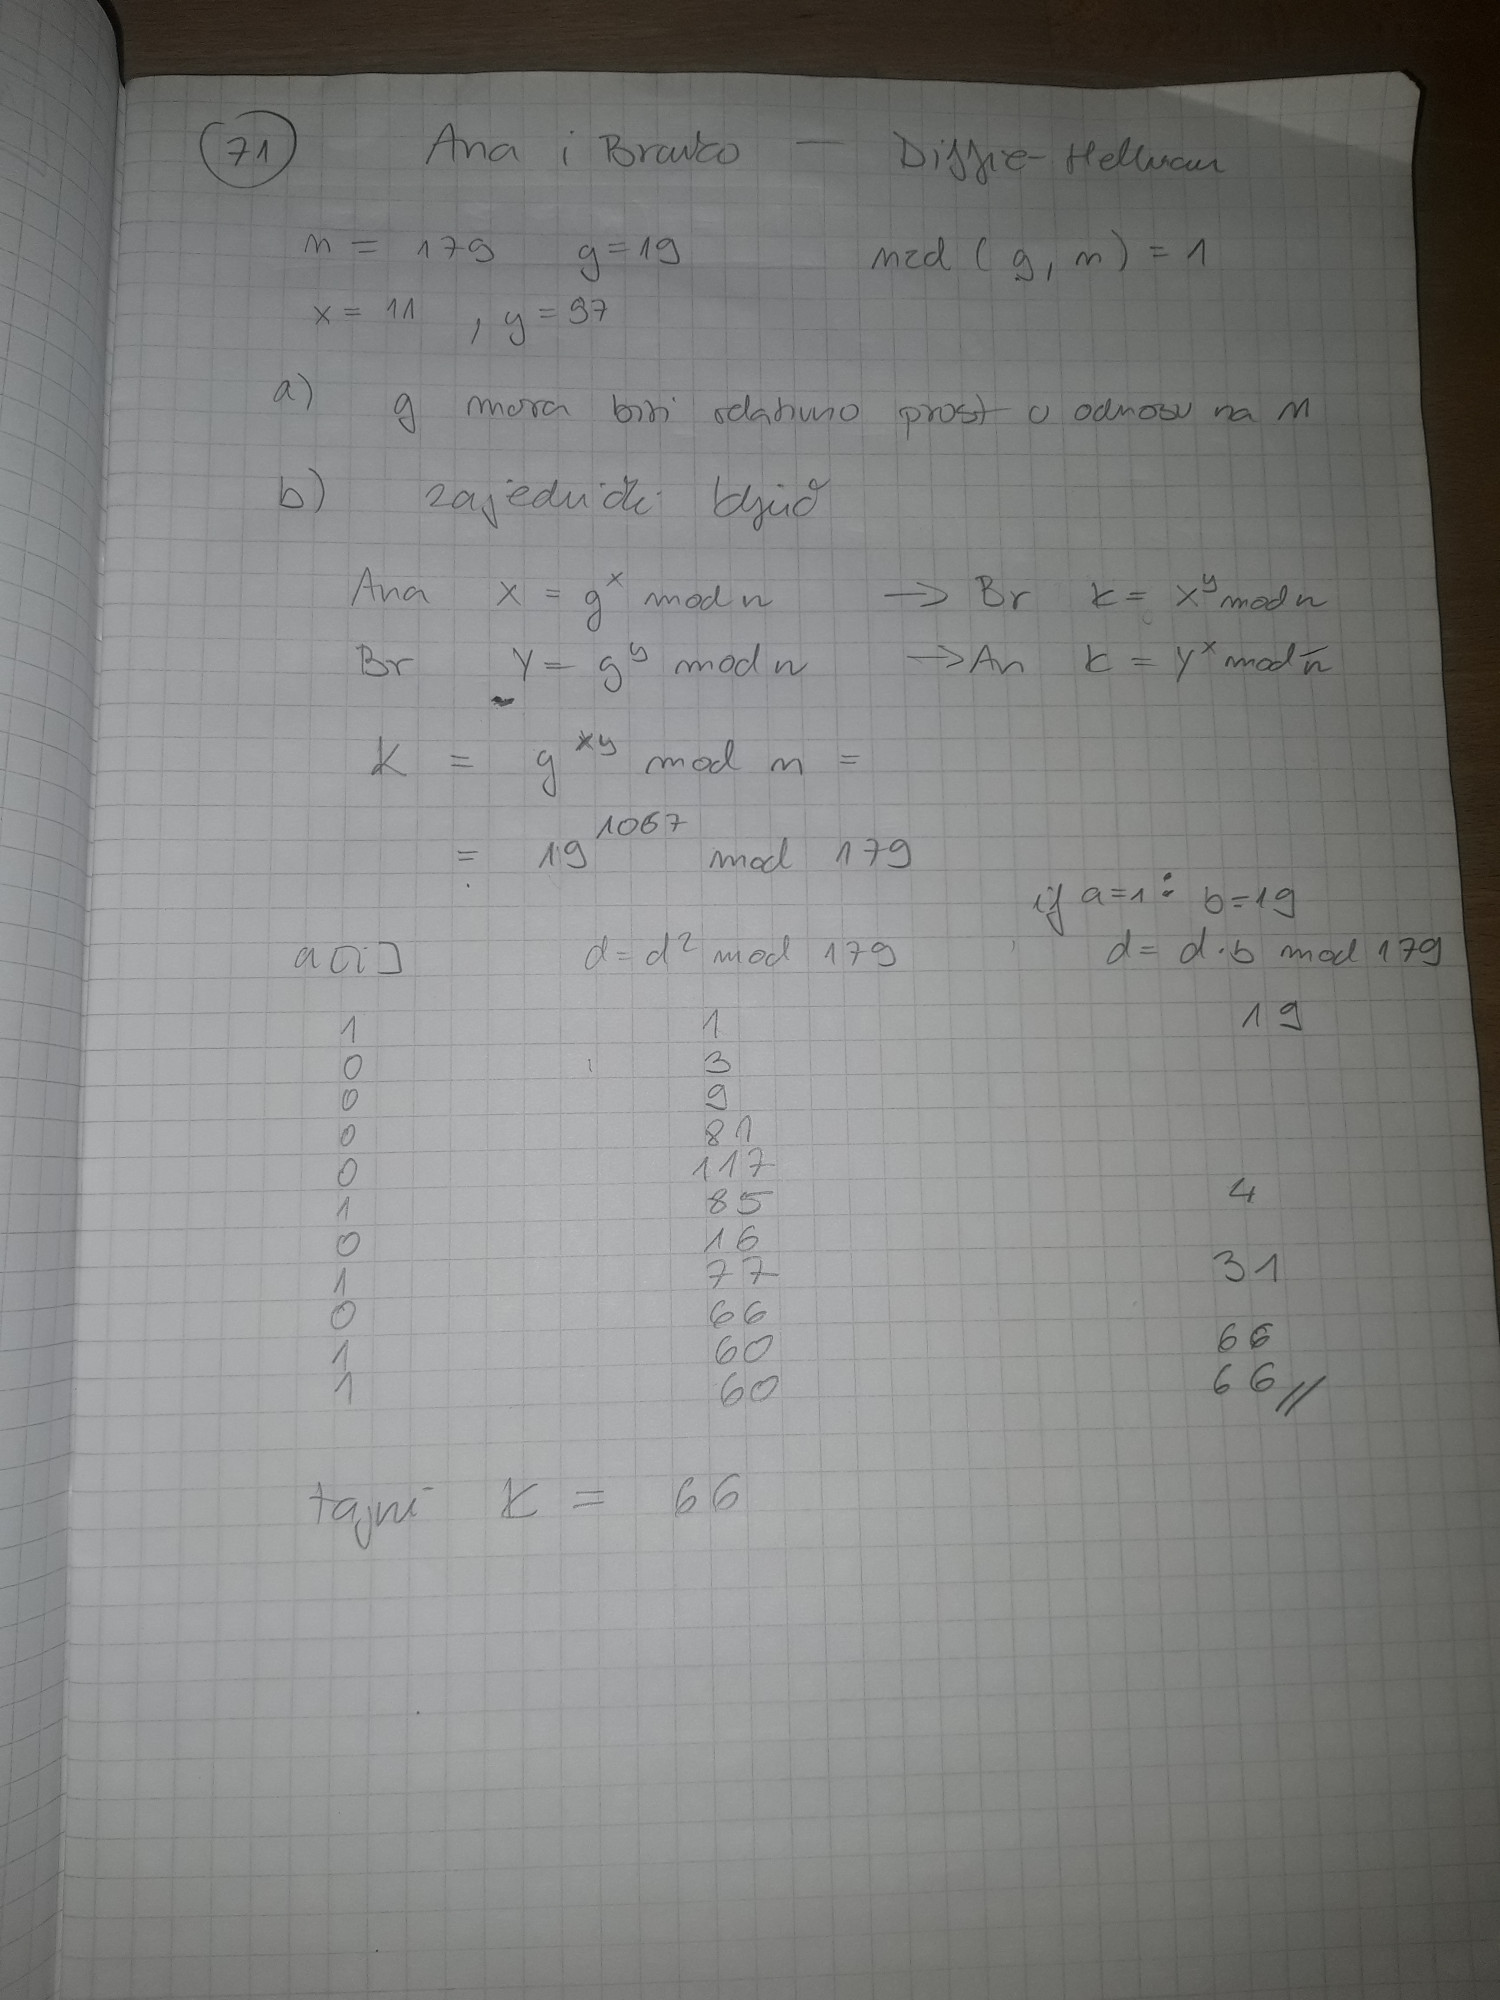 71 Ana i Branko — Diffie-Hellman
n = 179 g=19 nzd (g, n) = 1
x = 11 , y = 97
a) g mora biti relativno prost u odnosu na n
b) zajednički ključ
Ana X = g^x mod n → Br K = X^y mod n
Br Y = g^y mod n → An K = Y^x mod n
K = g^xy mod n =
= 19^1067 mod 179
if a=1 : b=19
a[i] d=d² mod 179 d= d·b mod 179
1 1 19
0 3
0 9
0 81
0 117
1 85 4
0 16
1 77 31
0 66
1 60 66
1 60 66
tajni K = 66